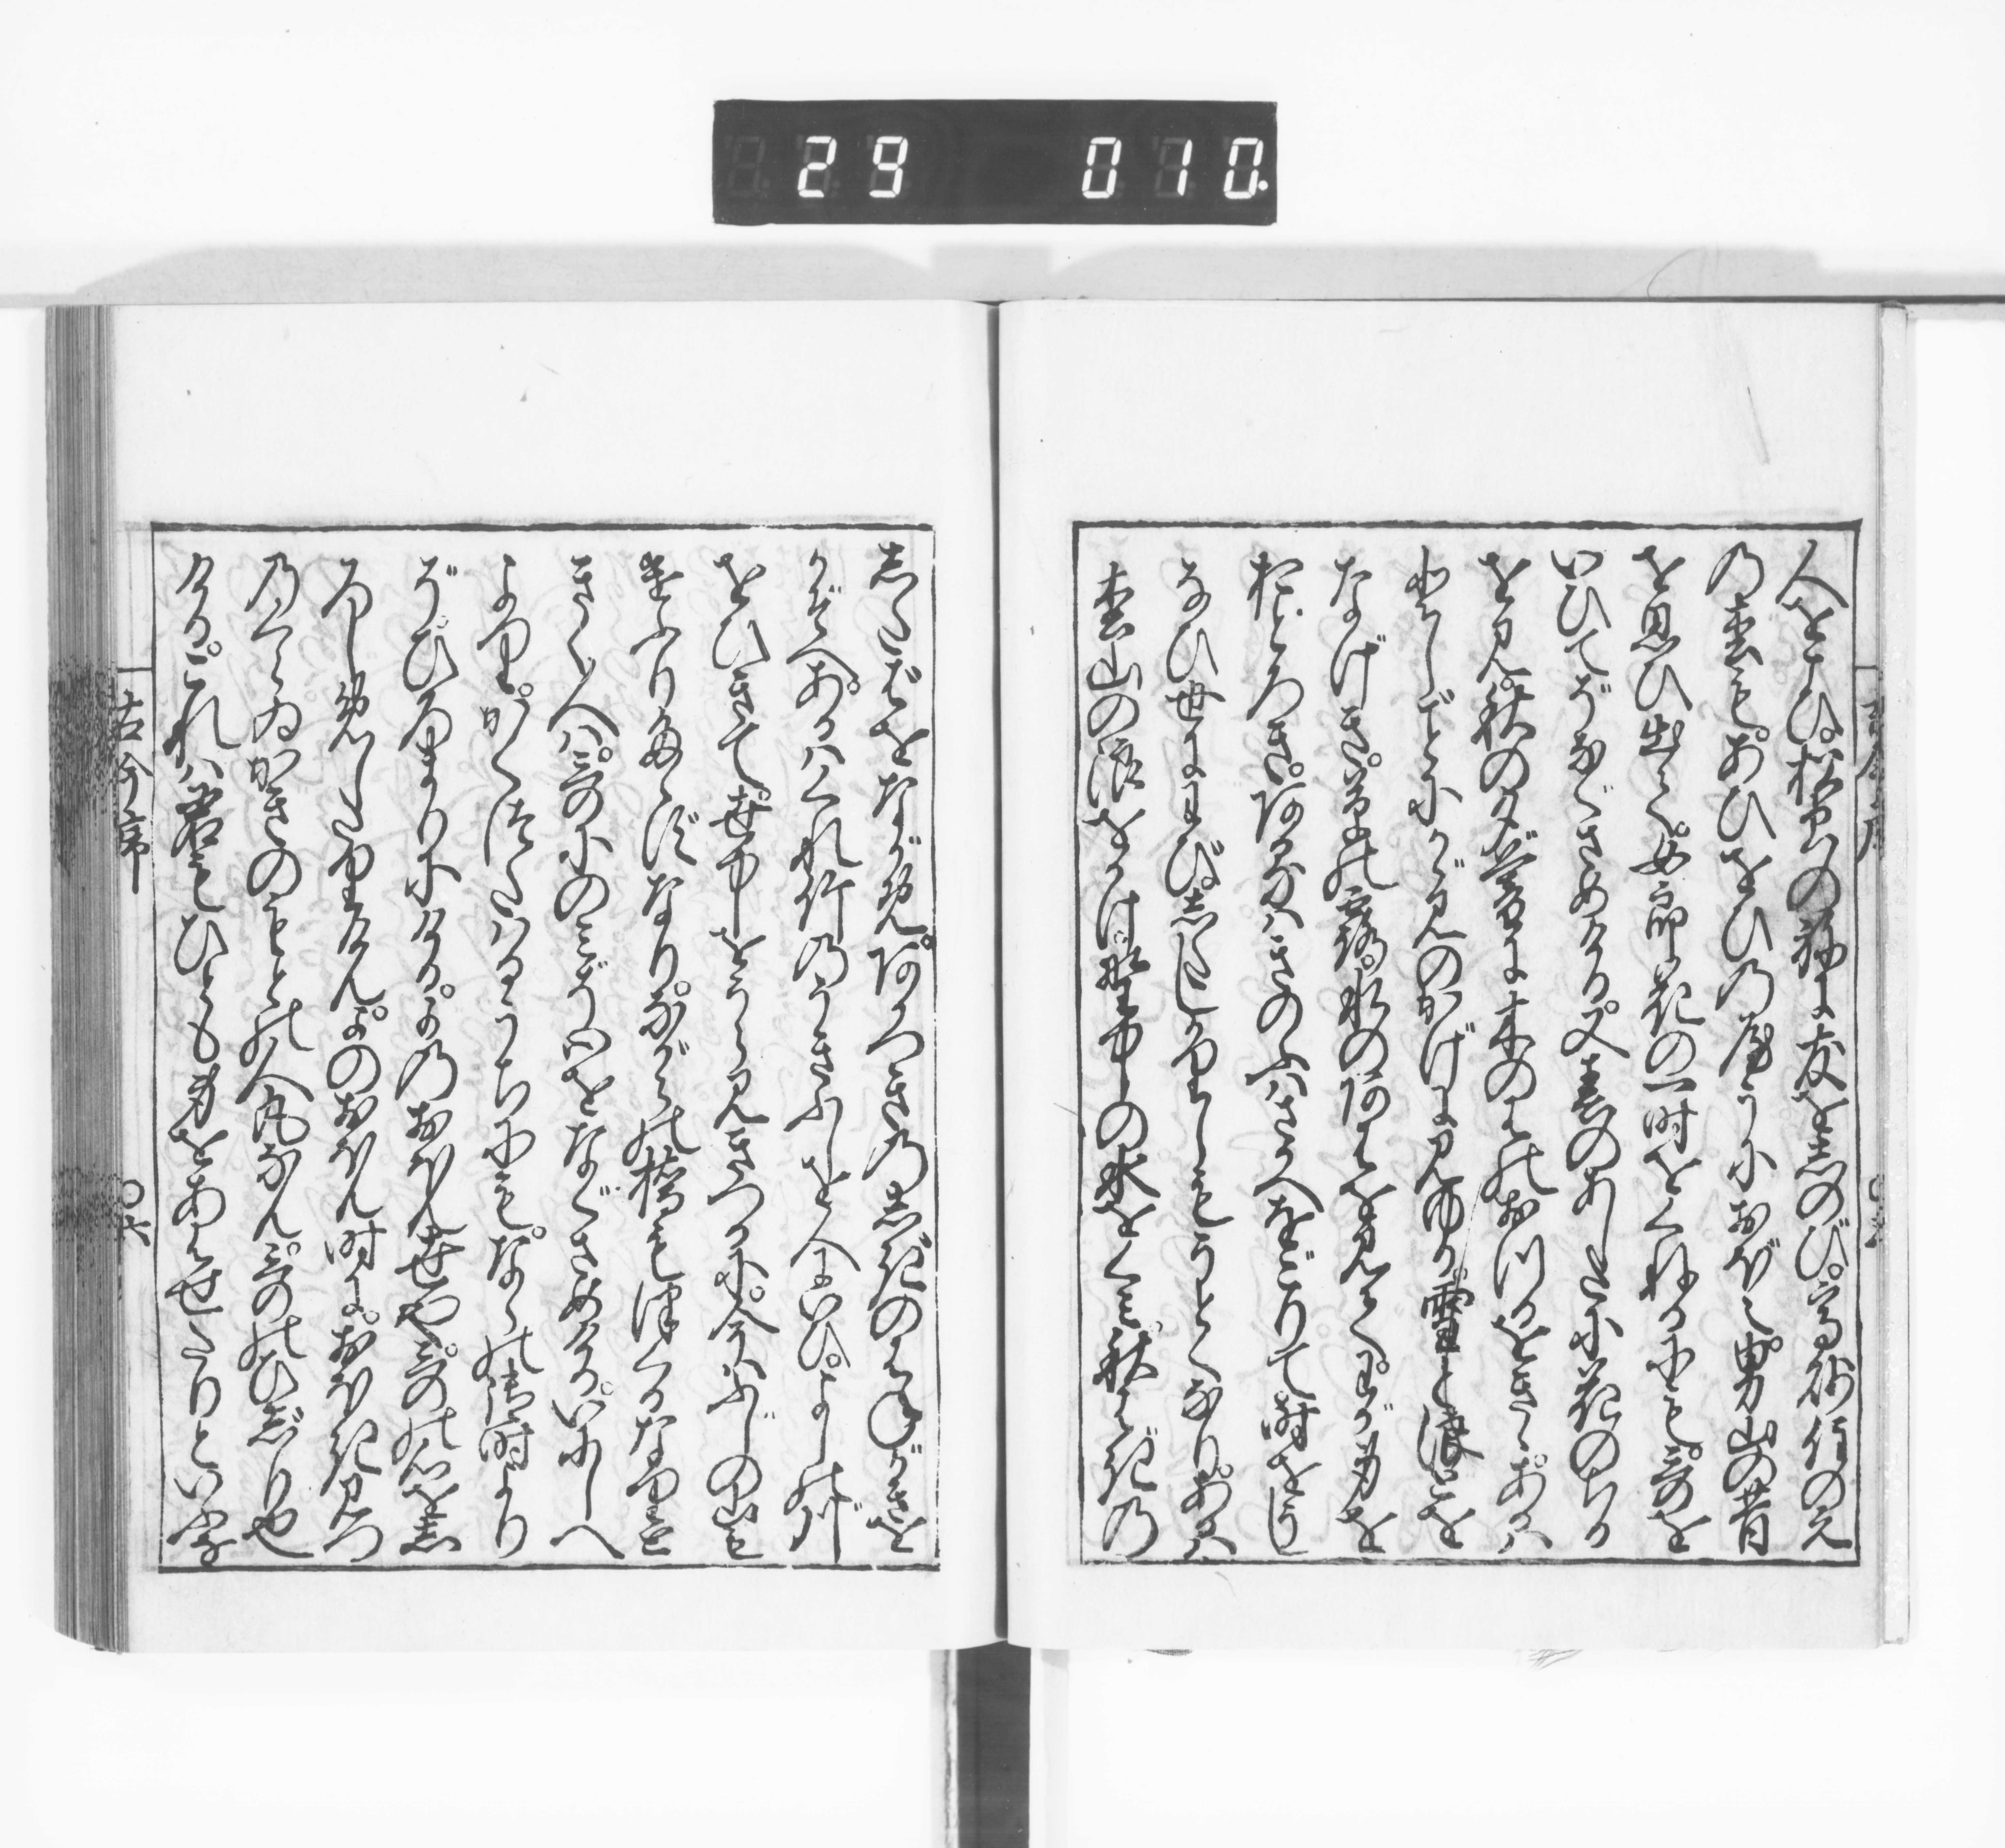 29 010
人をこひ。松虫の音に友を志のび。高砂住の江
乃まつも。あひをひ乃やうにおぼえ。男山の昔
を思ひ出て。女郎花の一時をくねるにも。哥を
いひてぞなぐさめける。又春のあしたに花のちる
を見。秋の夕ぐれに木のはのおつるをきゝ。あるは
としごとにかゞみのかげに見ゆる雪と浪とを
なげき。草の露。水のあはを見て。わが身を
おどろき。あるはきのふはさかへおごりて時をうし
なひ。世にわび。志たしかりしもうとくなり。あるは
松山の浪をかけ。野中の水をくみ。秋はぎ乃
志たばをながめ。あかつき乃志ぎのはねがきを
かぞへ。あるはくれ竹乃うきふしを人にいひ。よしの川
をひきて。世中をうらみきつるに。今はふじの山も
煙たゝずなり。ながらの橋もつくるなりと
きく人は。哥にのみぞ心をなぐさめける。いにしへ
より。かくつたはるうちにも。ならの御時より
ぞ。ひろまりにける。かの おほん世や。哥の心を志
ろしめしたりけん。かのおほん時に。おほきみつ
乃くらゐかきのもとの人丸なん。哥のひじり也
ける。これは君もひとも身をあはせたりといふな
古今序
〇六